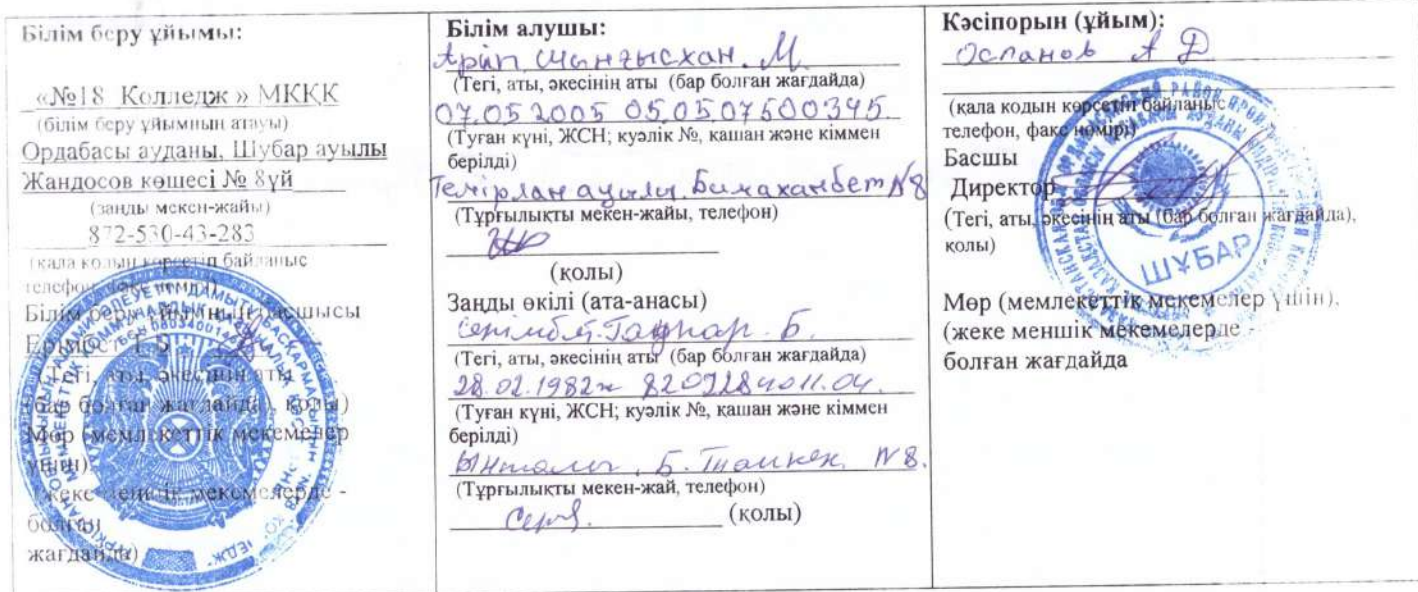 Білім беру ұйымы:
«№18 Колледж » МКҚК
(білім беру ұйымның атауы)
Ордабасы ауданы, Шубар ауылы
Жандосов көшесі № 8үй
(заңды мекен-жайы)
872-530-43-283
(қала кодын көрсетіп байланыс
телефон, факс немірі)
Білім беру ұйымның басшысы
(Тегі, аты, әкесінің аты
(бар болған жағдайда), қолы)
Мөр (мемлекеттік мекемелер
үшін).
(жеке меншік мекемелерде -
болған
жағдайда)
Білім алушы:
Арип Шыңғысхан. М.
(Тегі, аты, әкесінің аты (бар болған жағдайда)
07.05.2005 050507500345.
(Туған күні, ЖСН; куәлік №, қашан және кіммен
берілді)
Темірлан ауылы. №8
(Тұрғылықты мекен-жайы, телефон)
(қолы)
Заңды өкілі (ата-анасы)
Б.
(Тегі, аты, әкесінің аты (бар болған жағдайда)
28.02.1982ж
(Туған күні, ЖСН; куәлік №, қашан және кіммен
берілді)
Ынталы, Б. №8.
(Тұрғылықты мекен-жай, телефон)
(қолы)
Кәсіпорын (ұйым):
Оспанов А Д
(қала кодын көрсетіп байланыс
телефон, факс нөмірі)
Басшы
Директор
(Тегі, аты, әкесінің аты (бар болған жағдайда),
қолы)
ШҰБАР
Мөр (мемлекеттік мекемелер үшін),
(жеке меншік мекемелерде -
болған жағдайда